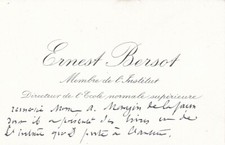 Ernest Bersot
Membre de l'Institut
Directeur de l'Ecole normale supérieure
remercie Mr A. de la façon
dont il a présenté des livres et de
l'intérêt qu'il porte à l'auteur.